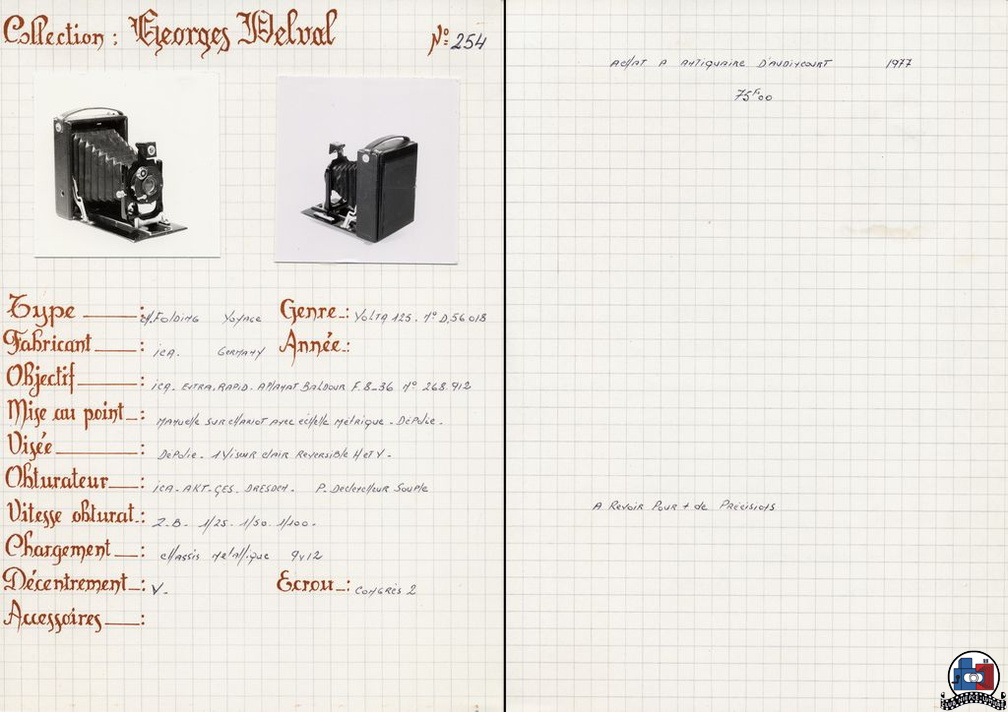 Collection : Georges Delval
N° 254
Type : A. Folding Voyage Genre : Volta 125. N° D,56018
Fabricant : iCA. Germany Année :
Objectif : iCA. Extra. Rapid. Aplanat Baldour F.8_36 N° 268.912
Mise au point : Manuelle sur chariot avec échelle métrique. Dépolie.
Visée : Dépolie. 1 Viseur clair Reversible H et V.
Obturateur : iCA. AKT. GES. DRESDEN. P. Declencheur Souple
Vitesse obturat. : Z.B. 1/25. 1/50. 1/100.
Chargement : chassis métallique 9x12
Décentrement : V. Ecrou : Congrès 2
Accessoires :
Achat A Antiquaire D'Audincourt 1977
75Frs00
A Revoir Pour + de Précisions